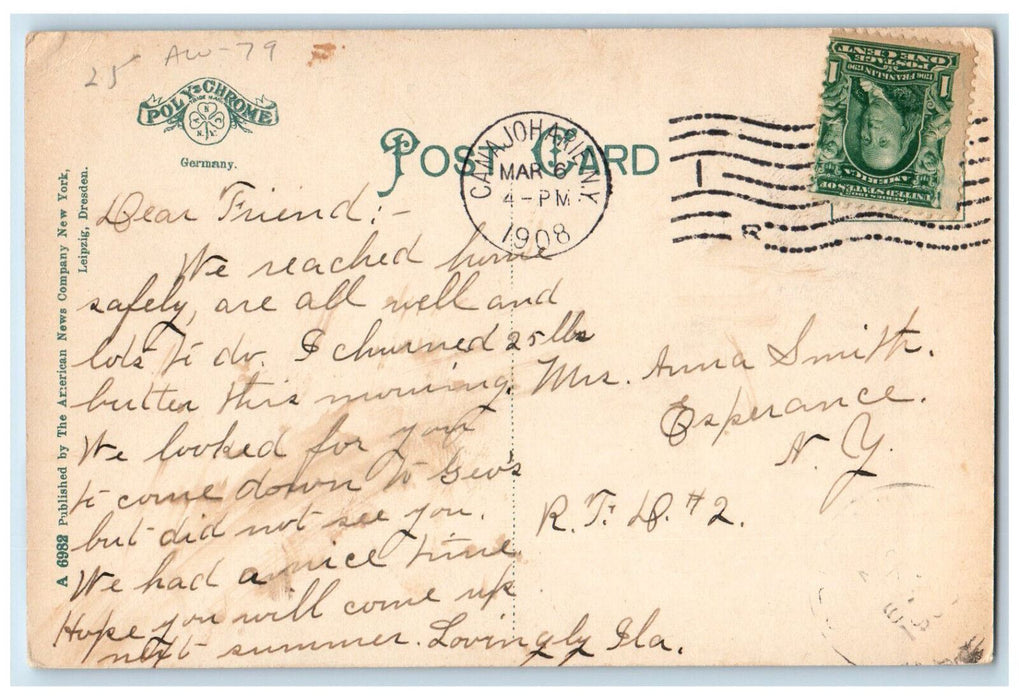 25 AW-79
POLY-CHROME
TRADE MARK
A N C N.Y.
Germany.
POST CARD
CANAJOHARIE N.Y.
MAR 6
4-PM
1908
1 R
POSTAGE
ONE CENT
1 1
1706 FRANKLIN 1790
SERIES 1902
UNITED STATES OF
AMERICA
A 6982 Published by The American News Company New York,
Leipzig, Dresden.
Dear Friend:-
We reached home
safely, are all well and
lots to do. I churned 25 lbs
butter this morning.
We looked for you
to come down to Geo's
but did not see you.
We had a nice time.
Hope you will come up
next summer. Lovingly Ila.
Mrs. Anna Smith.
Esperance.
N. Y.
R. F. D. #2.